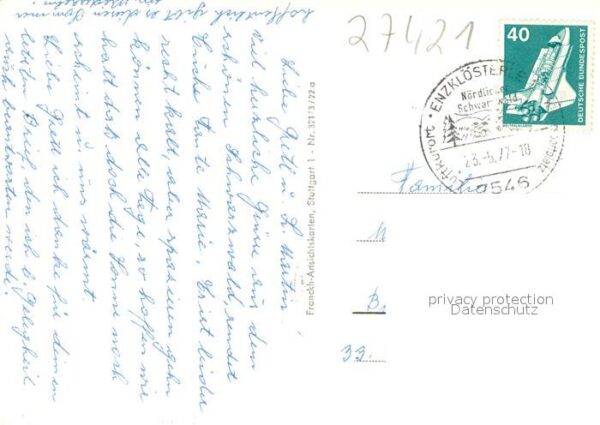 hoffentlich gibt es diesen Sommer
ein Wiedersehen!
Liebe Gretl u. Martin!
viel herzliche Grüsse aus dem
schönen Schwarzwald sendet
Euch Tante Marie. Es ist leider
recht kalt, aber spazieren gehn
können alle Tage, so hoffen wir
halt dass doch die Sonne noch
scheint u. uns wärmt.
Liebe Gretl ich danke für deinen
lieben Brief, den ich b. Gelegenheit
beantworten werde.
Franckh-Ansichtskarten, Stuttgart 1 - Nr. 321/3/22 a
27421
40
DEUTSCHE BUNDESPOST
ENZKLÖSTERLE
Nördlicher
Schwarzwald
LUFTKURORT
23.-5.77-18
7546
Familie
M
B.
33.
privacy protection
Datenschutz